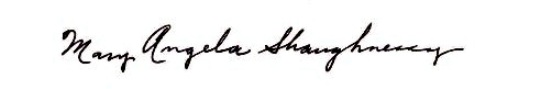 Mary Angela Shaughnessy